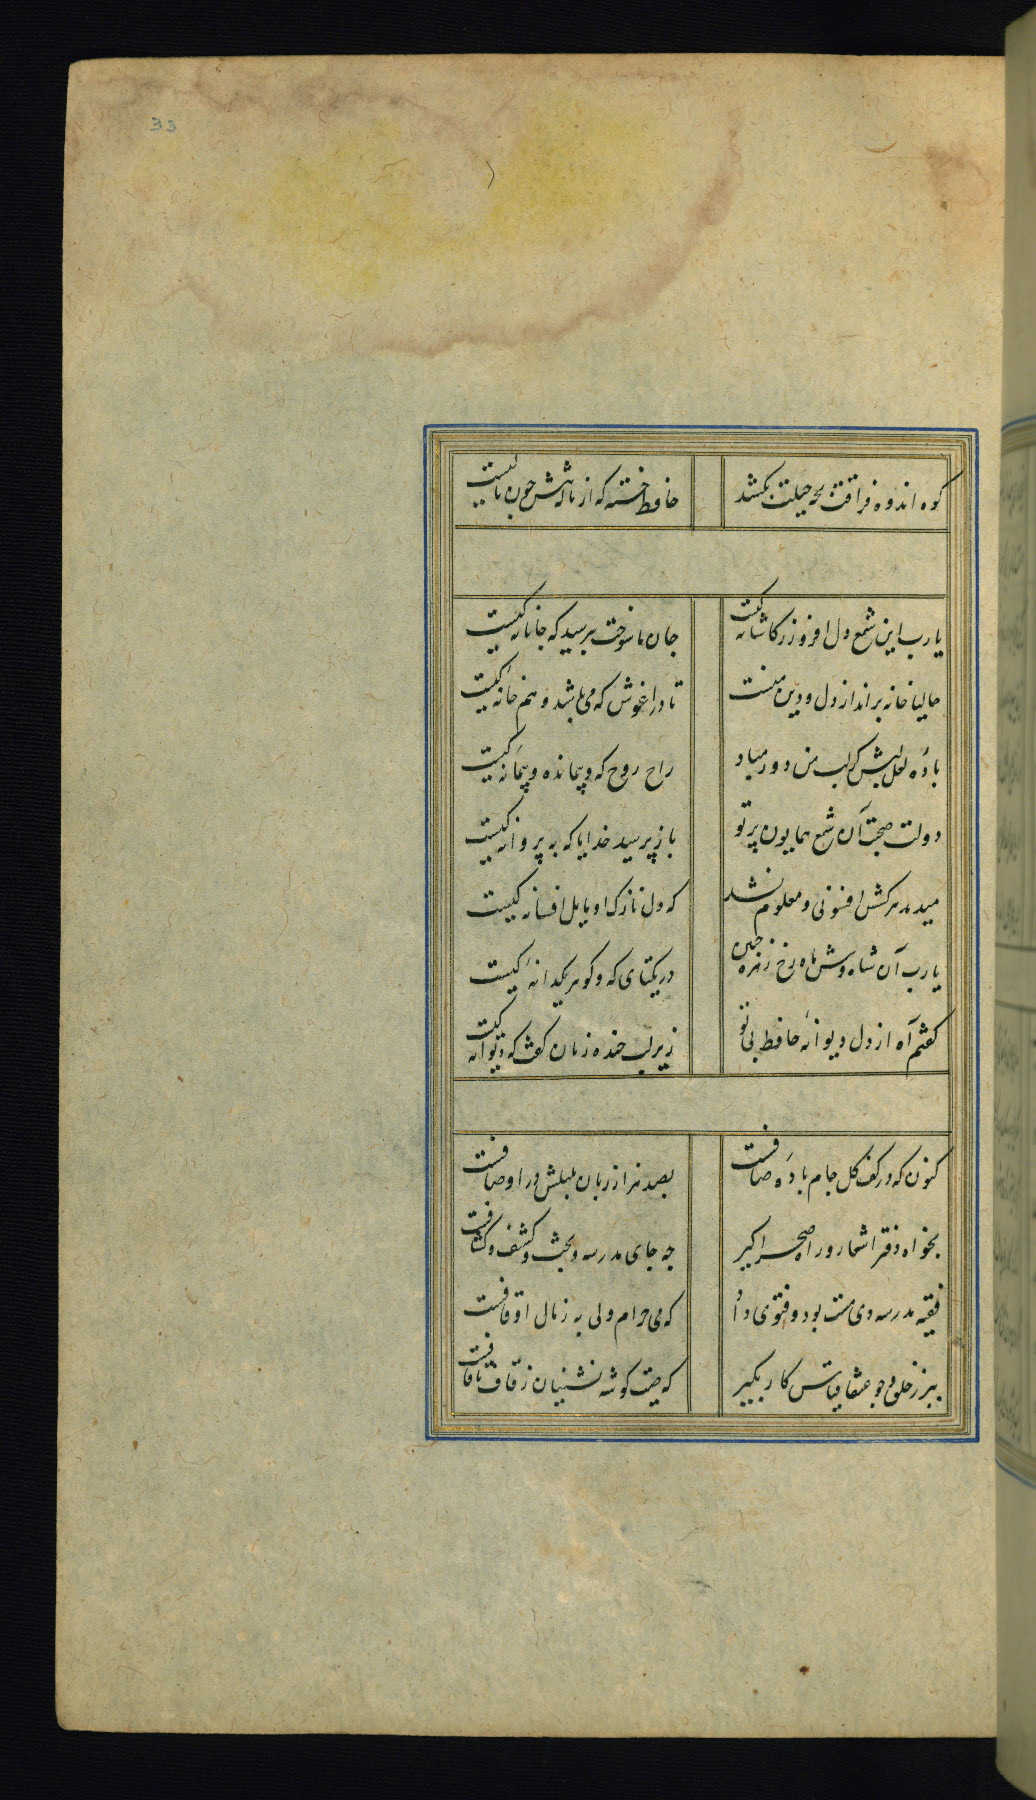 33
کوه اندوه فراقت بچه حیلت بکشد
حافظ خسته که از ناله تنش چون نالیست
یا رب این شمع دل افروز ز کاشانه کیست
جان ما سوخت بپرسید که جانانه کیست
حالیا خانه برانداز دل و دین منست
تا در اغوش که می باشد و هم خانه کیست
بادهٔ لعل لبش کز لب من دور مباد
راح روح که و پیمانده و پیمانه کیست
دولت صحبت آن شمع همایون پرتو
باز پرسید خدایا که به پروانه کیست
میدمد هر کسش افسونی و معلوم نشد
که دل نازک او مایل افسانه کیست
یا رب آن شاه وش ماه رخ زهره جبین
در یکتای که و کوهر یکدانهٔ کیست
کفتم آه از دل دیوانهٔ حافظ بی تو
زیر لب خنده زنان کفت که دیوانه کیست
کنون که در کف کل جام بادهٔ صافست
بصد هزار زبان بلبلش در اوصافست
بخواه دفتر اشعار و راه صحرا کیر
چه جای مدرسه و بحث و کشف و کشافست
فقیه مدرسه دی مست بود و فتوی داد
که می حرام ولی به ز مال اوقافست
ببر ز خلق و جو عنقا قیاس کار بکیر
که صیت کوشه نشینان ز قاف تا قافست